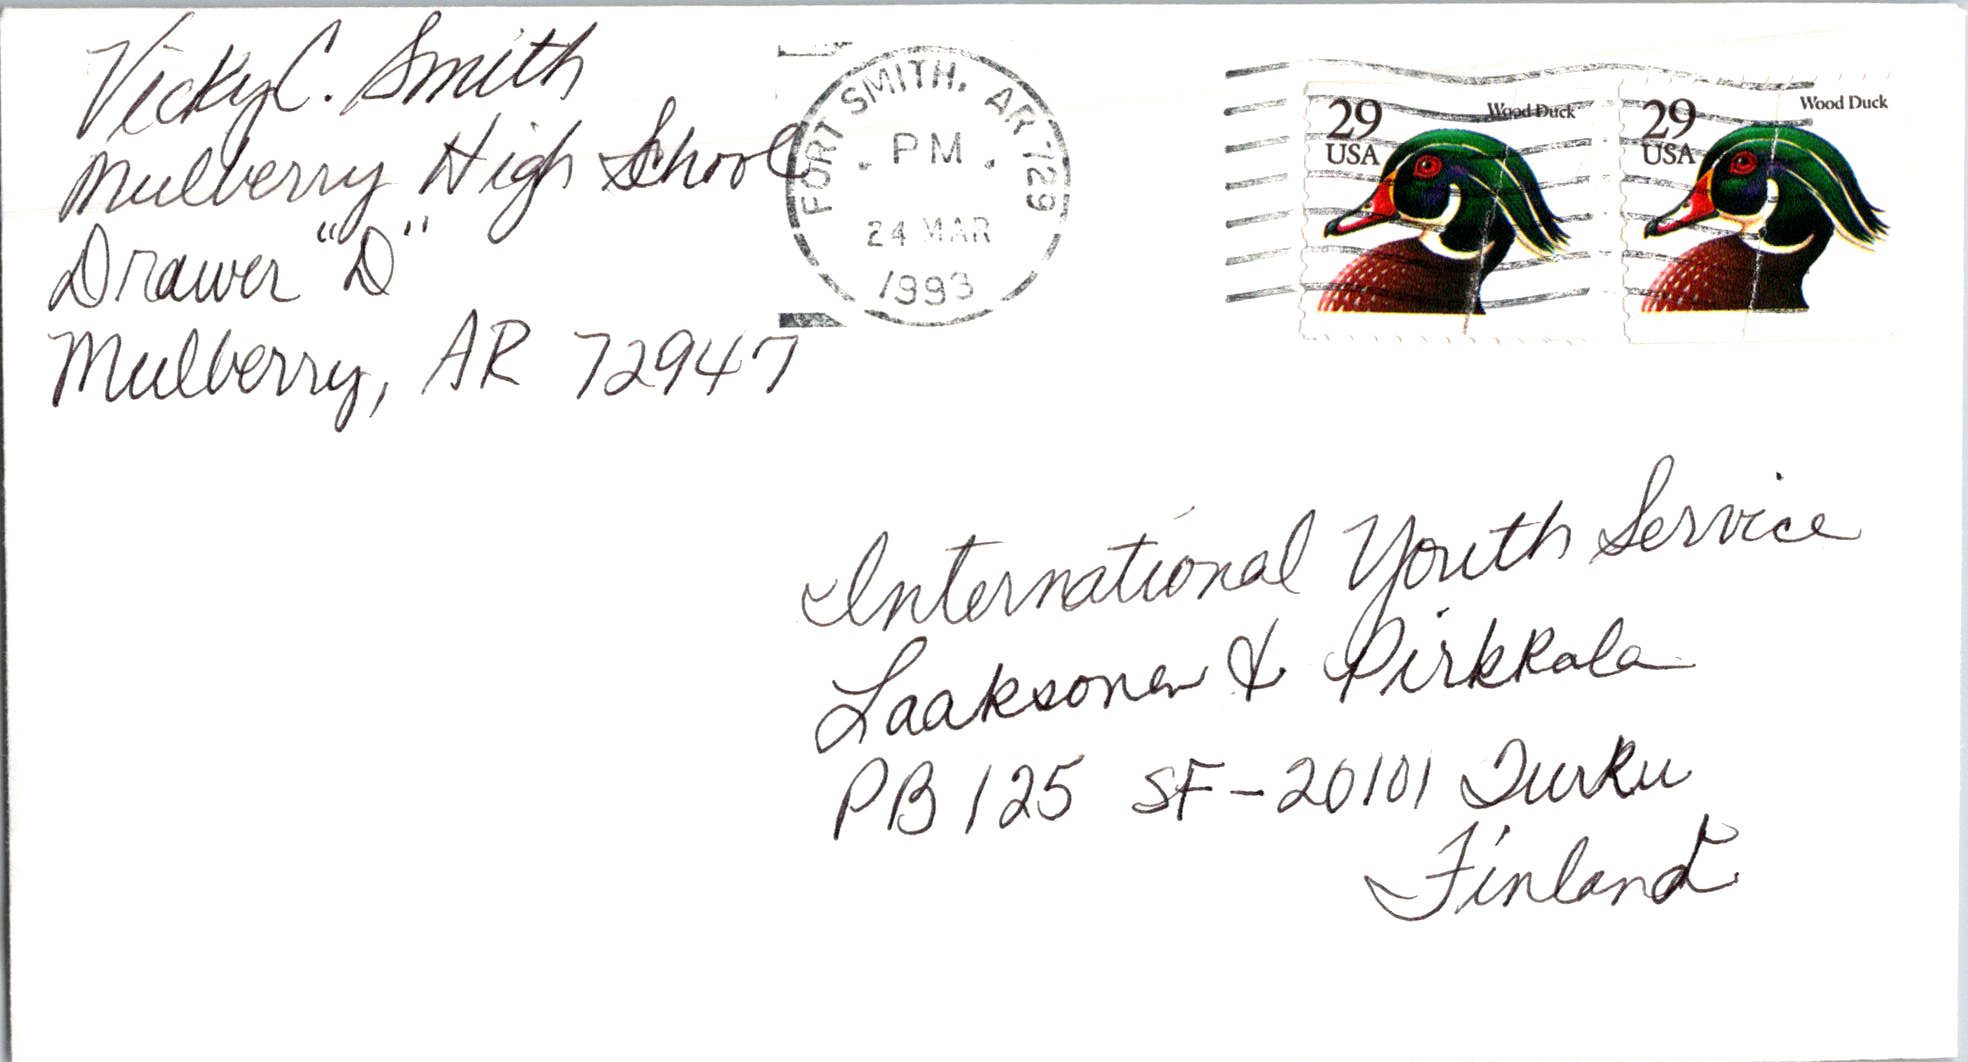 Vicky C. Smith
Mulberry High School
Drawer "D"
Mulberry, AR 72947
FORT SMITH, AR 729
PM
24 MAR
1993
29
USA
Wood Duck
29
USA
Wood Duck
International Youth Service
Laaksonen & Pirkkala
PB 125 SF-20101 Turku
Finland